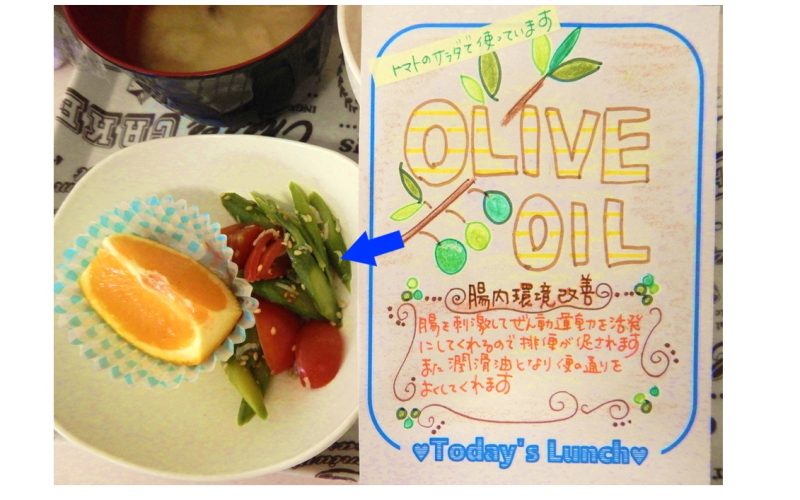 トマトのサラダで使っています
OLIVE
OIL
腸内環境改善
腸を刺激してぜん動運動を活発
にしてくれるので排便が促されます
また潤滑油となり便の通りを
よくしてくれます
♥Today's Lunch♥